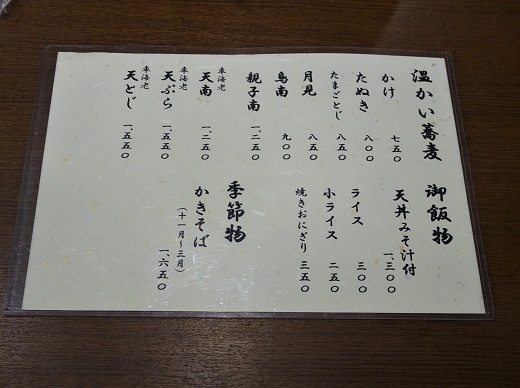 温かい蕎麦
かけ 七五〇
たぬき 八〇〇
たまごとじ 八五〇
月見 八五〇
鳥南 九〇〇
親子南 一、二五〇
車海老 天南 一、二五〇
車海老 天ぷら 一、五五〇
車海老 天とじ 一、五五〇
御飯物
天丼みそ汁付 一、三〇〇
ライス 三〇〇
小ライス 二五〇
焼きおにぎり 三五〇
季節物
かきそば 一、六五〇
(十一月~三月)